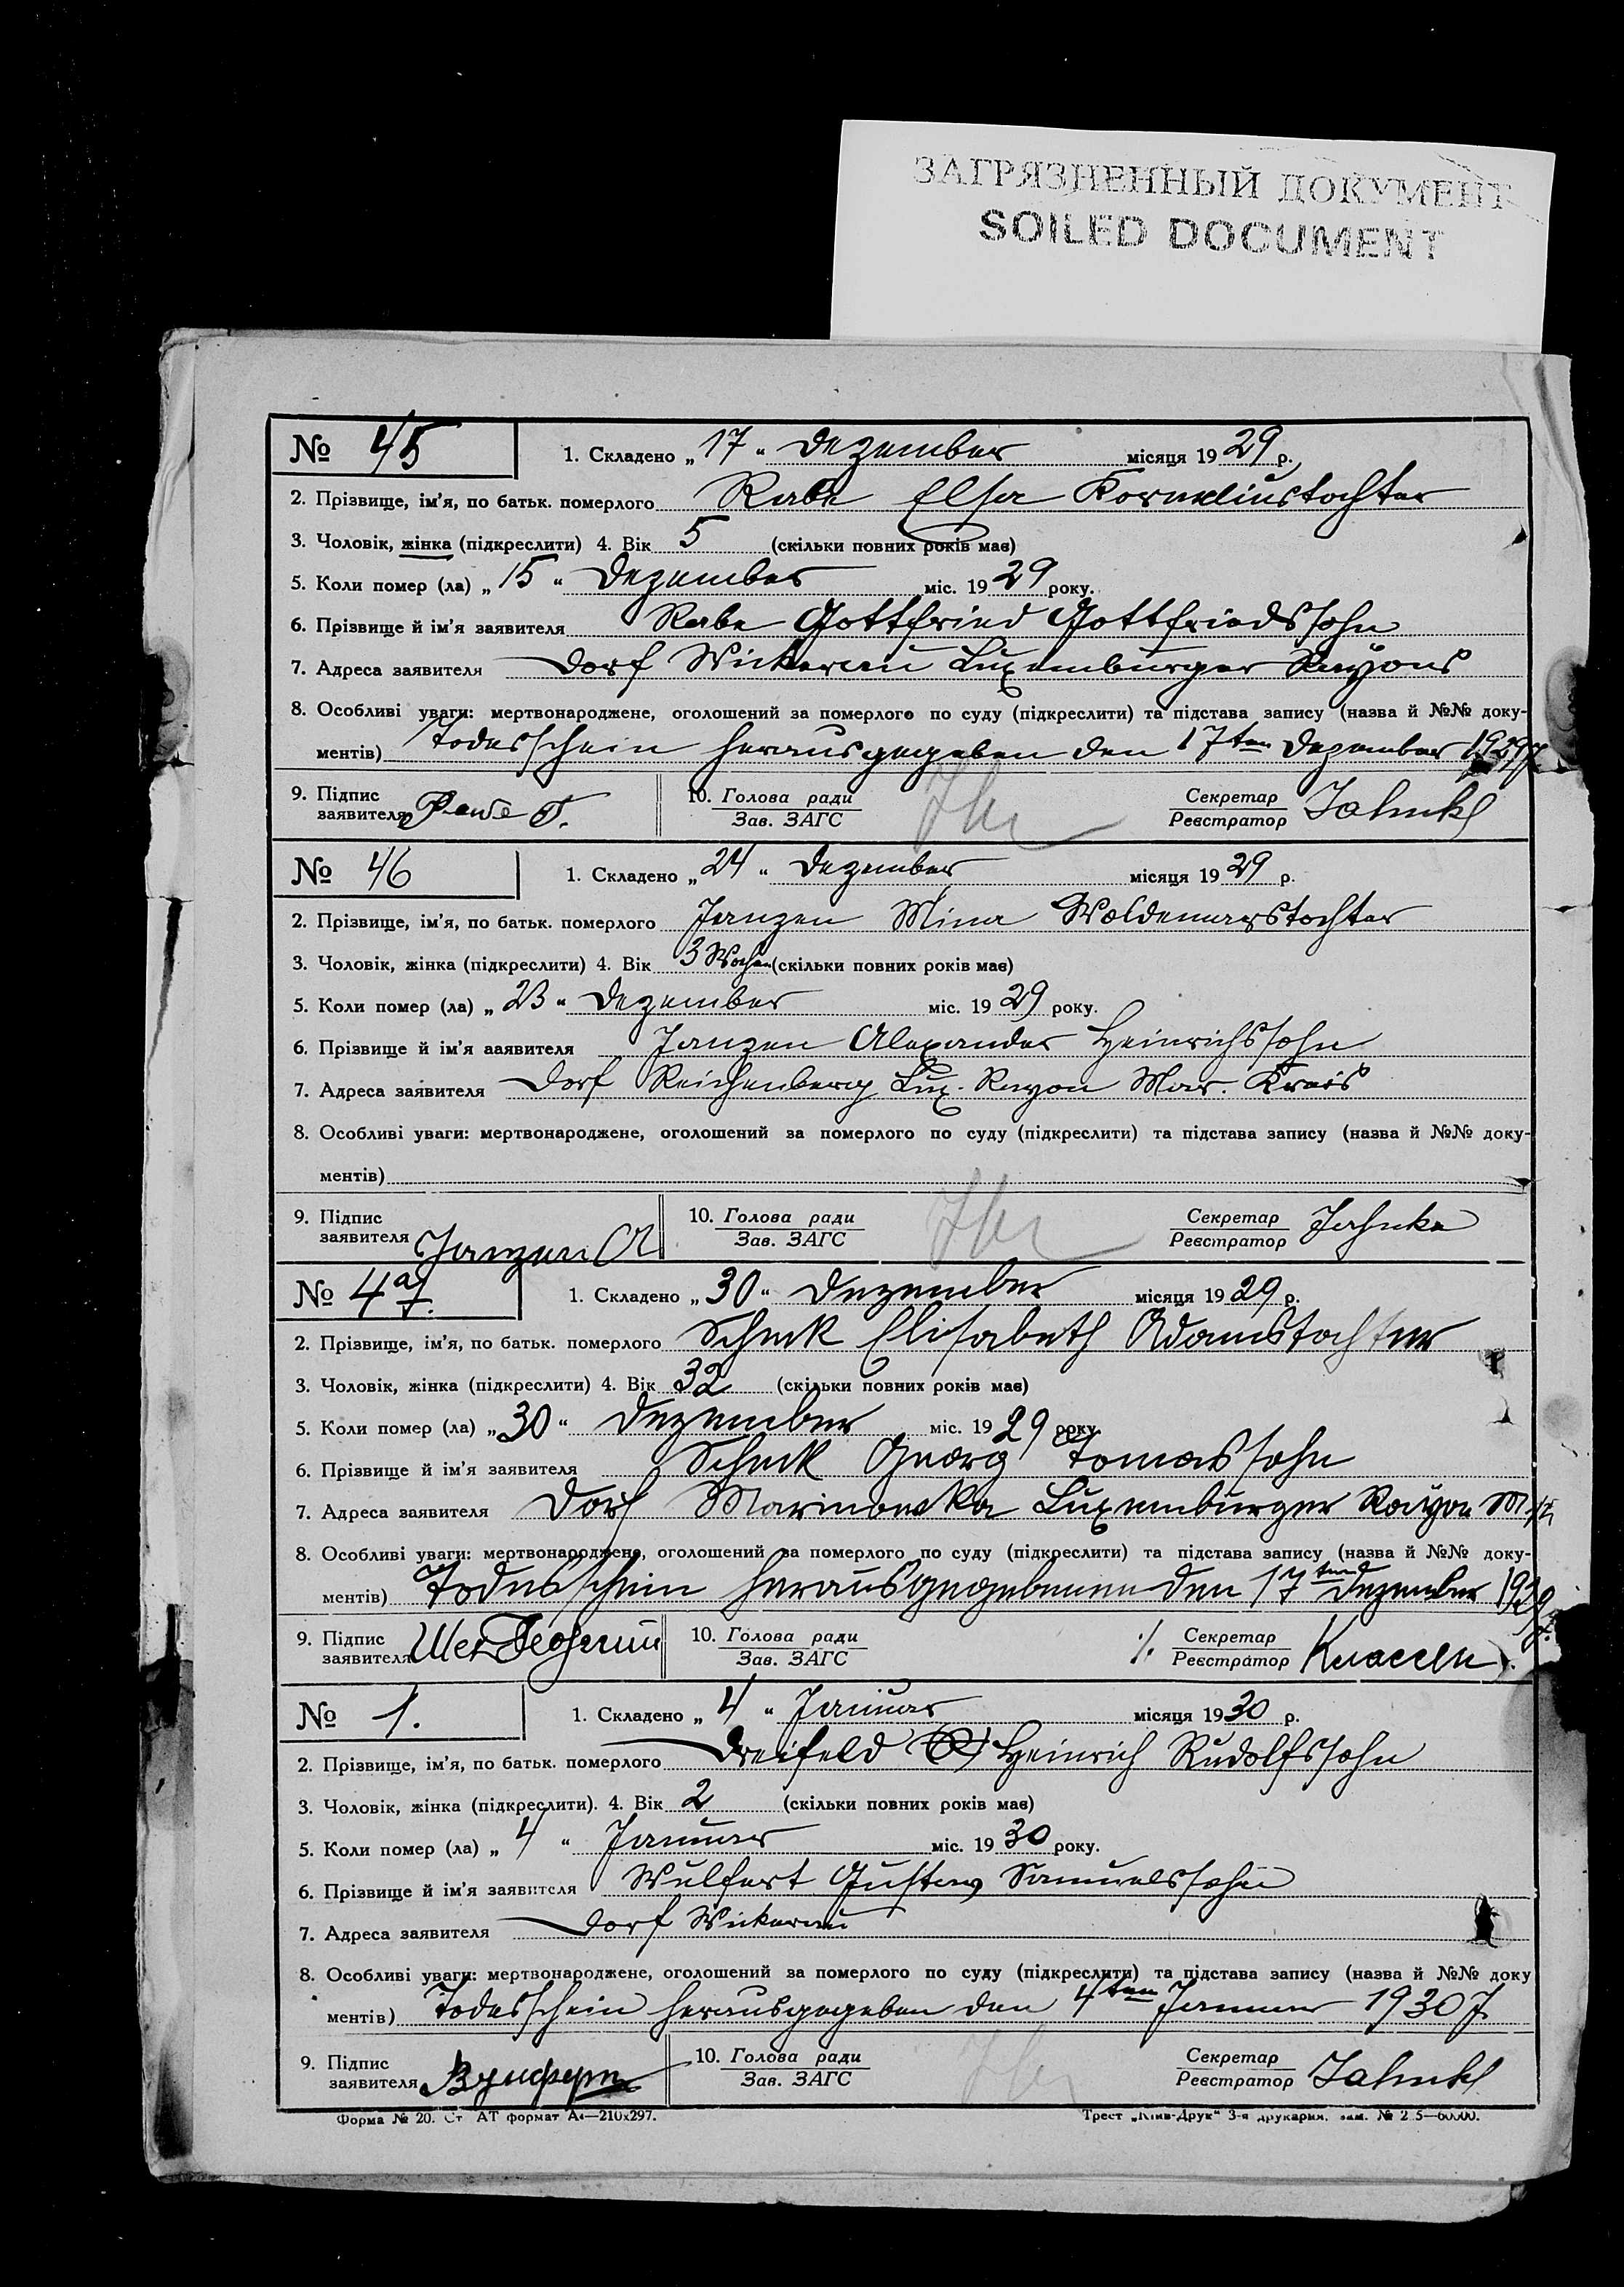 ЗАГРЯЗНЕННЫЙ ДОКУМЕНТ
SOILED DOCUMENT
№ 45 1. Складено „17“ Dezember місяця 1929 р.
2. Прізвище, ім'я, по батьк. померлого Rabe Elsa Korneliustochter
3. Чоловік, жінка (підкреслити) 4. Вік 5 (скільки повних років має)
5. Коли помер (ла) „15“ Dezember міс. 1929 року.
6. Прізвище й ім'я заявителя Rabe Gottfried Gottfriedssohn
7. Адреса заявителя Dorf Wickerau Luxemburger Rayons
8. Особливі уваги: мертвонароджене, оголошений за померлого по суду (підкреслити) та підстава запису (назва й №№ доку-
ментів) Todesschein herausgegeben den 17ten Dezember 1929
9. Підпис
заявителя
10. Голова ради
Зав. ЗАГС
Секретар
Реєстратор Jahnke
№ 46 1. Складено „24“ Dezember місяця 1929 р.
2. Прізвище, ім'я, по батьк. померлого Janzen Mina Woldemarstochter
3. Чоловік, жінка (підкреслити) 4. Вік 3 Wochen (скільки повних років має)
5. Коли помер (ла) „23“ Dezember міс. 1929 року.
6. Прізвище й ім'я заявителя Janzen Alexander Heinrichssohn
7. Адреса заявителя Dorf Reichenberg Lux. Rayon Mar. Kreis
8. Особливі уваги: мертвонароджене, оголошений за померлого по суду (підкреслити) та підстава запису (назва й №№ доку-
ментів)
9. Підпис
заявителя Janzen A
10. Голова ради
Зав. ЗАГС
Секретар
Реєстратор Jahnke
№ 47. 1. Складено „30“ Dezember місяця 1929 р.
2. Прізвище, ім'я, по батьк. померлого Scheck Elisabeth Adamstochter
3. Чоловік, жінка (підкреслити) 4. Вік 32 (скільки повних років має)
5. Коли помер (ла) „30“ Dezember міс. 1929 року.
6. Прізвище й ім'я заявителя Scheck Georg Tomassohn
7. Адреса заявителя Dorf Marinowka Luxemburger Rayon
8. Особливі уваги: мертвонароджене, оголошений за померлого по суду (підкреслити) та підстава запису (назва й №№ доку-
ментів) Todesschein herausgegebenen den 17ten Dezember 1929
9. Підпис
заявителя Шек Георгий
10. Голова ради
Зав. ЗАГС
Секретар
Реєстратор Классен
№ 1. 1. Складено „4“ Januar місяця 1930 р.
2. Прізвище, ім'я, по батьк. померлого Dreifeld Heinrich Rudolfssohn
3. Чоловік, жінка (підкреслити). 4. Вік 2 (скільки повних років має)
5. Коли помер (ла) „4“ Januar міс. 1930 року.
6. Прізвище й ім'я заявителя Wulfert Gustav Samuelssohn
7. Адреса заявителя Dorf Wickerau
8. Особливі уваги: мертвонароджене, оголошений за померлого по суду (підкреслити) та підстава запису (назва й №№ доку
ментів) Todesschein herausgegeben den 4ten Januar 1930 J.
9. Підпис
заявителя Вульферт
10. Голова ради
Зав. ЗАГС
Секретар
Реєстратор Jahnke
Форма № 20. Ст АТ формат А4—210x297.
Трест „Київ-Друк“ 3-я друкарня.